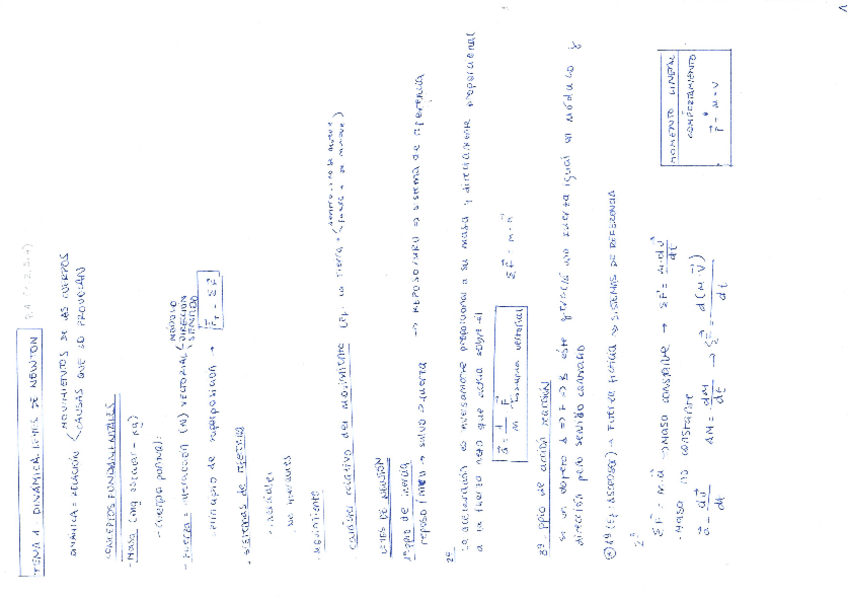 TEMA 1 - DINÁMICA: LEYES DE NEWTON
DINÁMICA = RELACIÓN < MOVIMIENTOS DE LOS CUERPOS
CAUSAS QUE LO PROVOCAN
CONCEPTOS FUNDAMENTALES
- Masa (mag escalar - kg)
- cuerpo puntual:
- Fuerza = interacción (N) VECTORIAL < MÓDULO
DIRECCIÓN
SENTIDO
principio de superposición → F_T = ΣF
- SISTEMAS DE
· inerciales
no inerciales
- Movimiento
- carácter relativo del movimiento
LEYES DE NEWTON
1º ppio de inercia
reposo/MRU → salvo fuerza → REPOSO/MRU => sistema de referencia
2º
La aceleración es inversamente proporcional a su masa y directamente proporcional
a la fuerza neta que actúa sobre él
ΣF = m·a
3º ppio de acción reacción
si un objeto A => F => B este ejerce una fuerza igual en módulo y
dirección pero sentido contrario
→ Fuerza ficticia => SISTEMAS DE REFERENCIA
2º
ΣF = m·a → MASA CONSTANTE → ΣF = m·dv/dt
- MASA NO CONSTANTE
a = dv/dt
ΔM = dM/dt → ΣF = d(M·v)/dt
MOMENTO LINEAL
COMPORTAMIENTO
p = M·v